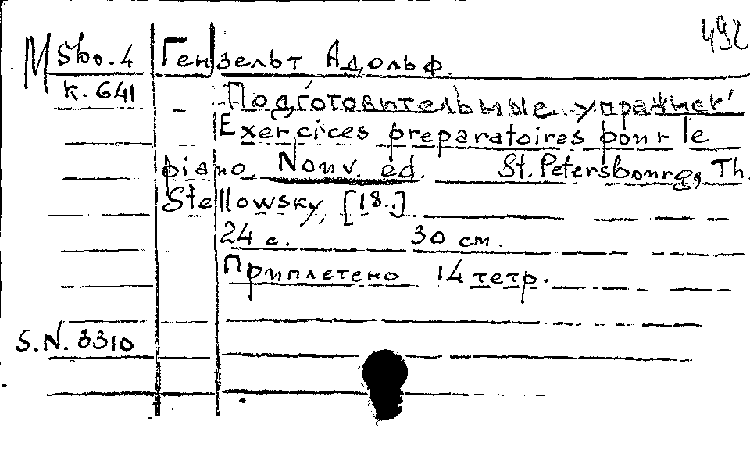 492
M Sbo. 4 Гензельт Адольф.
к. 641 Подготовительные упражнен'
Exercices preparatoires pour le
piano Nouv. ed. St. Petersbourg, Th.
Stellowsky, [18.]
24 с. 30 см.
Приплетено 14 тетр.
S.N. 3310